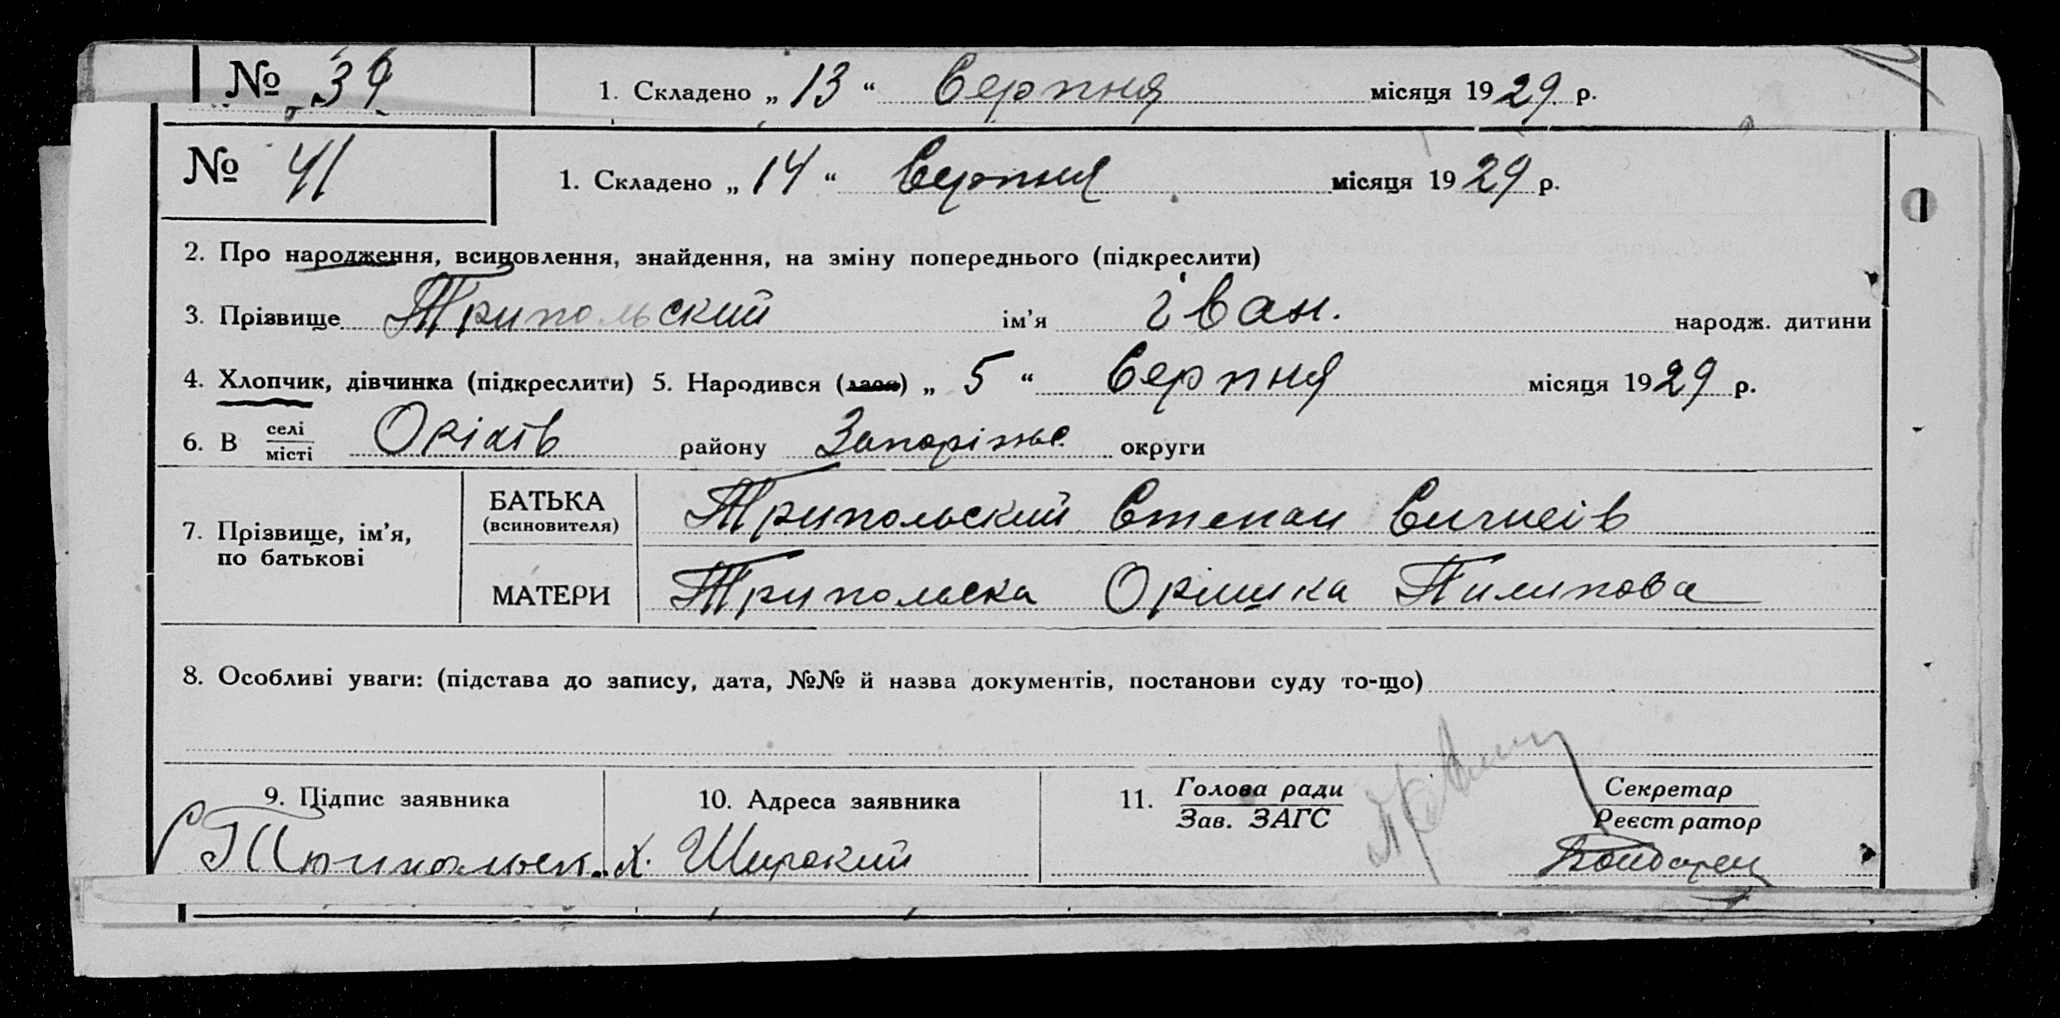 № 39 1. Складено „ 13 “ Серпня місяця 1929 р.
№ 41 1. Складено „ 14 “ Серпня місяця 1929 р.
2. Про народження, всиновлення, знайдення, на зміну попереднього (підкреслити)
3. Прізвище Трипольский ім’я Іван. народж. дитини
4. Хлопчик, дівчинка (підкреслити) 5. Народився () „ 5 “ Серпня місяця 1929 р.
6. В селі/місті Оріхів району Запоріжс округи
7. Прізвище, ім’я, по батькові
БАТЬКА (всиновителя) Трипольский Степан
МАТЕРИ Трипольска Оришка Пилипова
8. Особливі уваги: (підстава до запису, дата, №№ й назва документів, постанови суду то-що)
9. Підпис заявника 10. Адреса заявника 11. Голова ради/Зав. ЗАГС Секретар/Реєстратор
х. Широкий